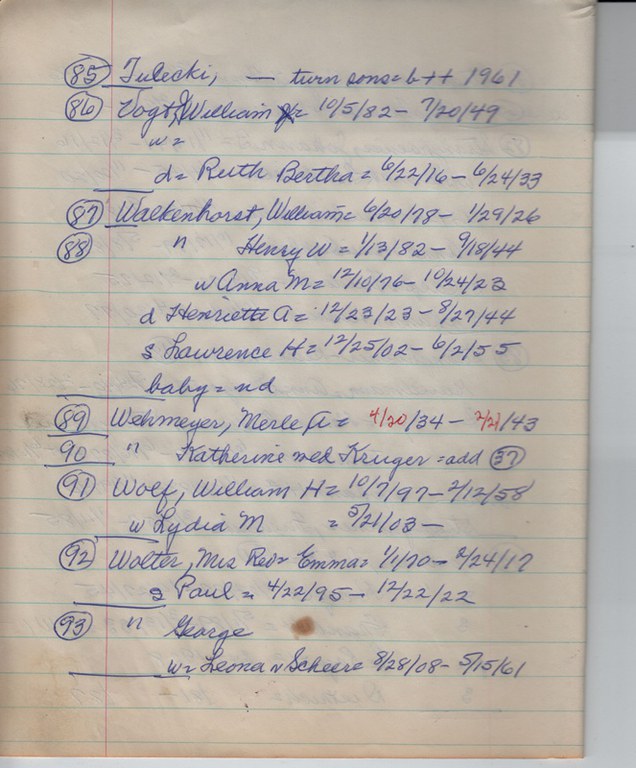 85 Tulecki, — turn sons = b++ 1961
86 Vogt, William = 10/5/82 - 7/20/49
w =
d = Ruth Bertha = 6/22/16 - 6/24/33
87 Walkenhorst, William = 6/20/78 - 1/29/26
88 " Henry W = 1/13/82 - 9/18/44
w Anna M = 12/10/76 - 10/24/23
d Henriette A = 12/23/23 - 8/27/44
s Lawrence H = 12/25/02 - 6/2/55
baby = nd
89 Wehmeyer, Merle A = 4/20/34 - 2/21/43
90 " Katherine wed Kruger = add 37
91 Wolf, William H = 10/7/97 - 2/12/58
w Lydia M = 5/21/03 —
92 Wolter, Mrs Rev = Emma = 1/1/70 - 2/24/17
s Paul = 4/22/95 - 12/22/22
93 " George
w = Leona v Scheere 8/28/08 - 5/15/61